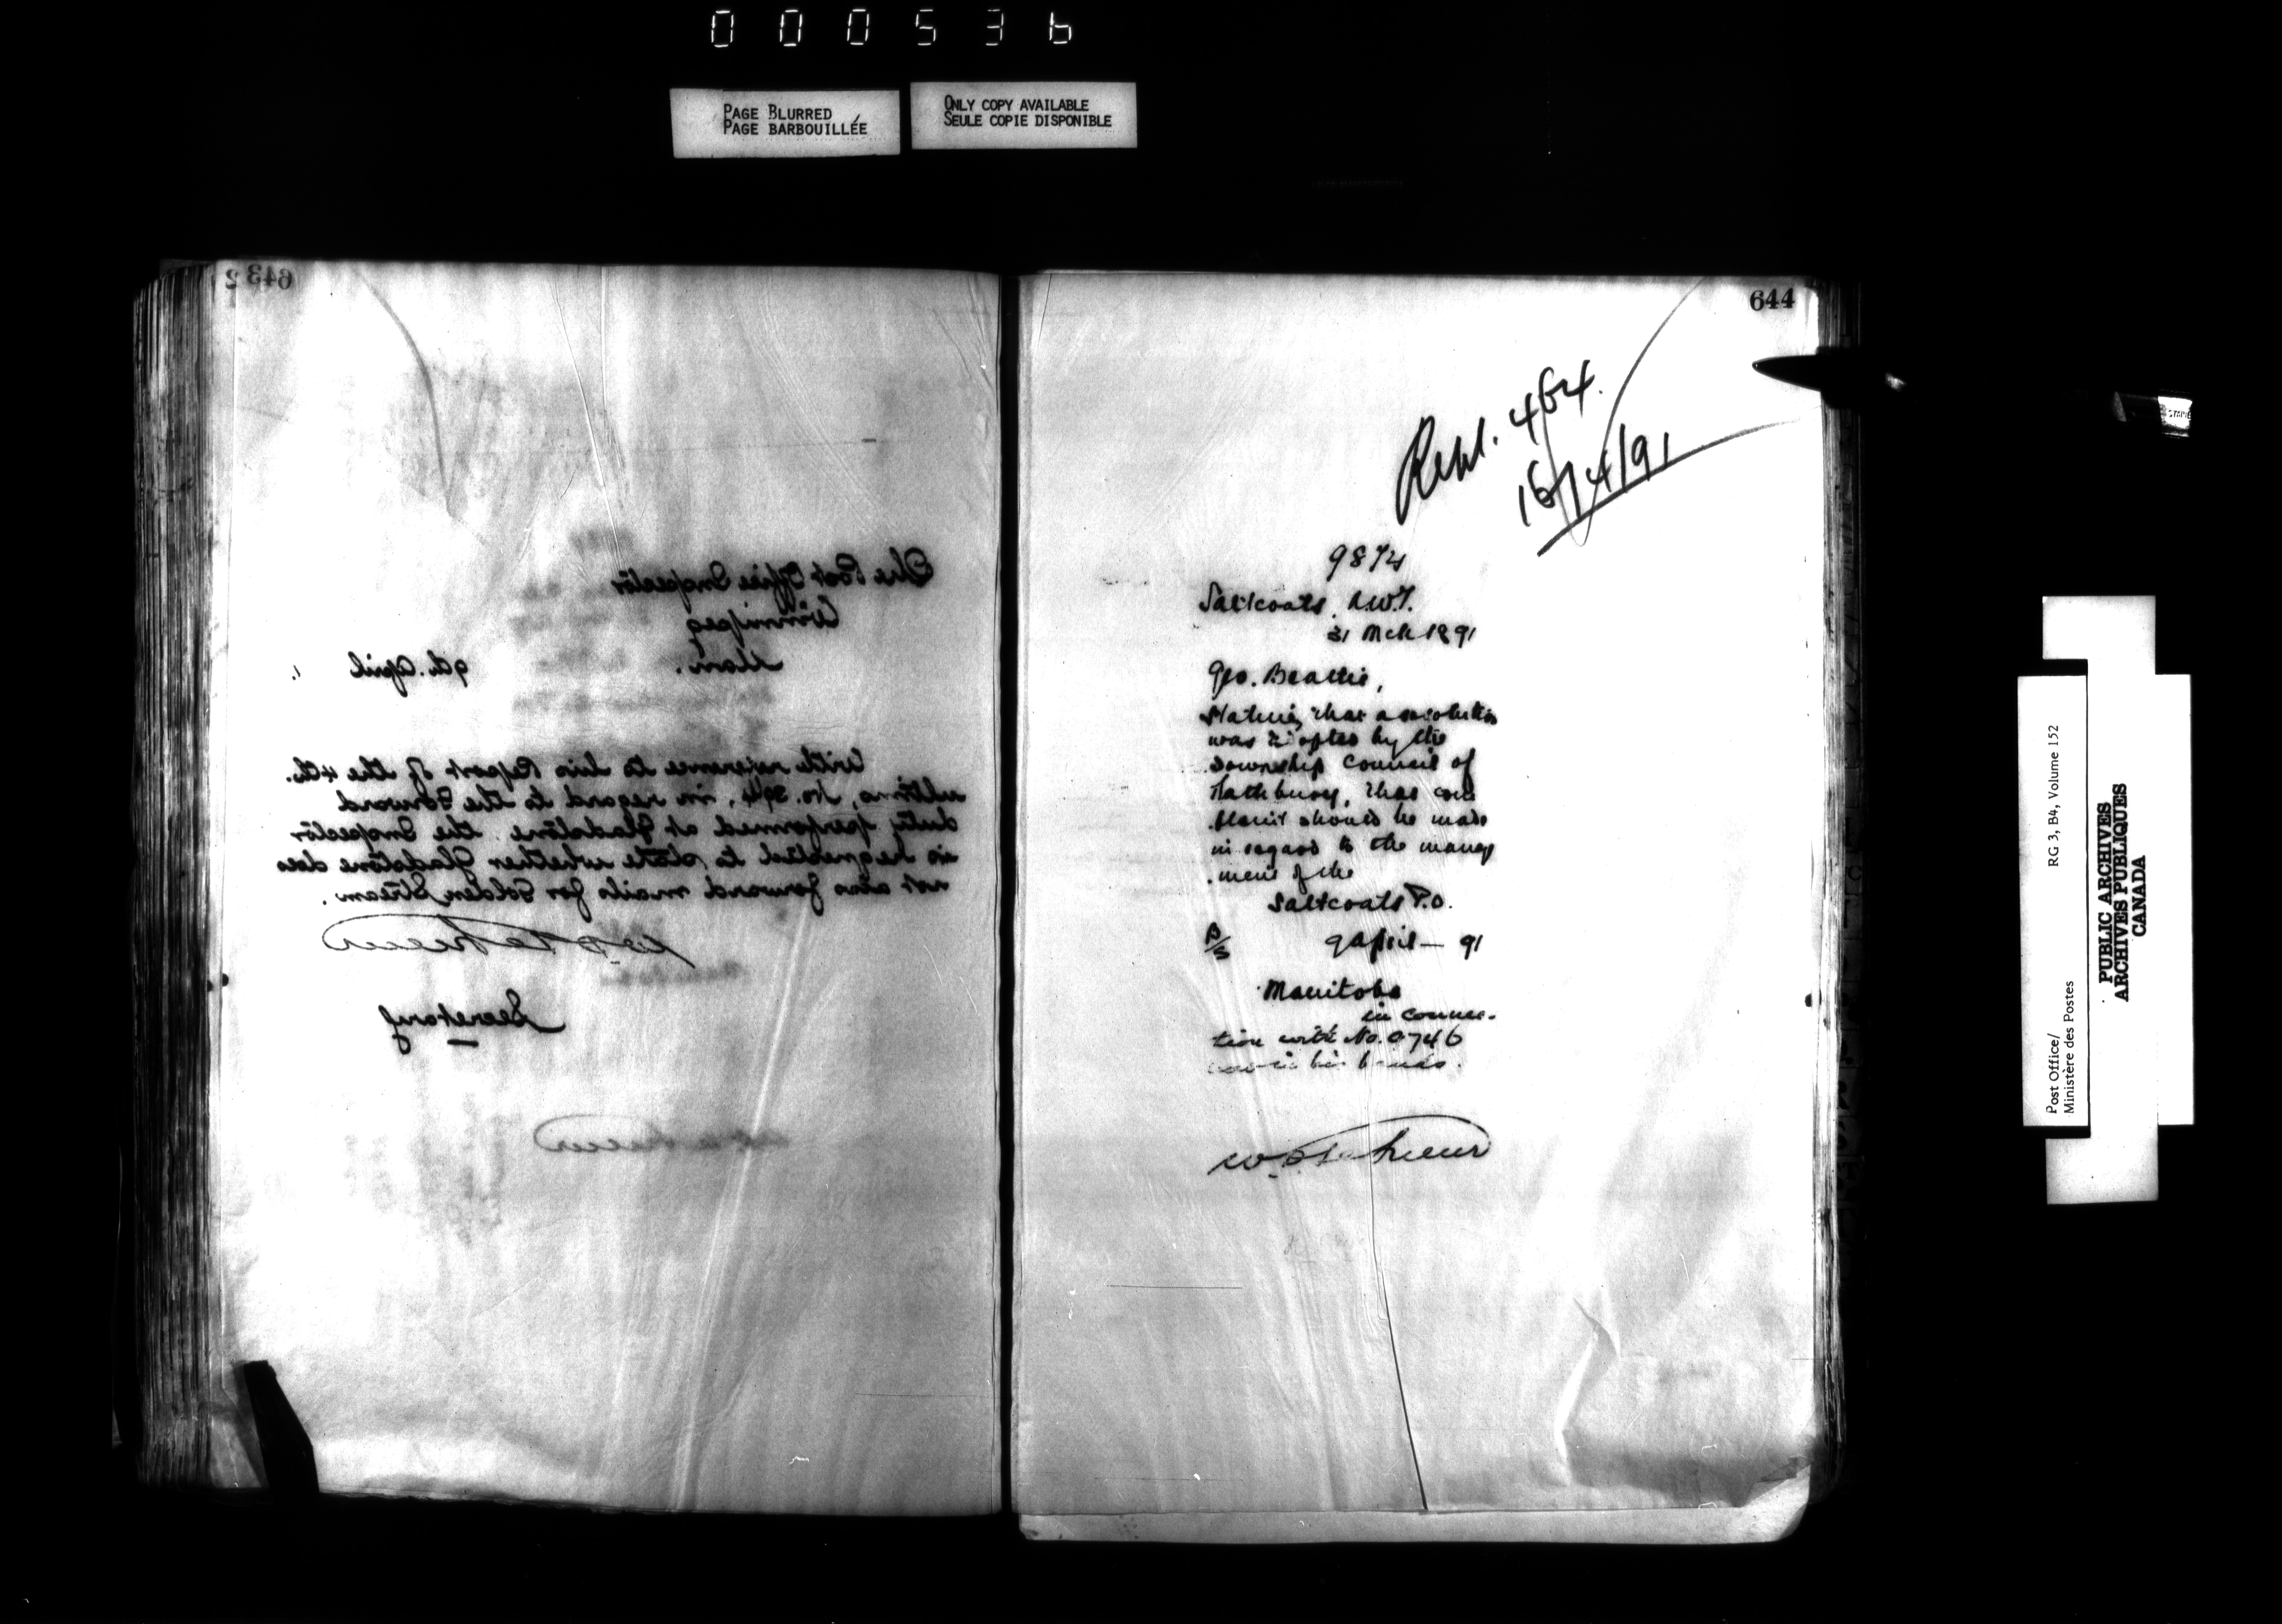 000536
PAGE BLURRED
PAGE BARBOUILLÉE
ONLY COPY AVAILABLE
SEULE COPIE DISPONIBLE
643
The Post Office Inspector
Winnipeg
Man.
9th. April
With reference to his Report of the 4th.
ultimo, No. 394, in regard to the Forward
duty performed at Gladstone the Inspector
is requested to state whether Gladstone does
not also forward mails for Golden Stream.
W D LeSueur
Secretary
644
Repl. 464.
16/4/91
9874
Saltcoats N.W.T.
31 Mch 1891
Geo. Beattie,
Stating that a resolution
was adopted by the
Township Council of
that com
plaint should be made
in regard to the manage
ment of the
Saltcoats P.O.
B/S 9 April — 91
Manitoba
in connec-
tion with No. 0746
now in his hands.
W D LeSueur
Post Office/
Ministère des Postes
RG 3, B4, Volume 152
PUBLIC ARCHIVES
ARCHIVES PUBLIQUES
CANADA